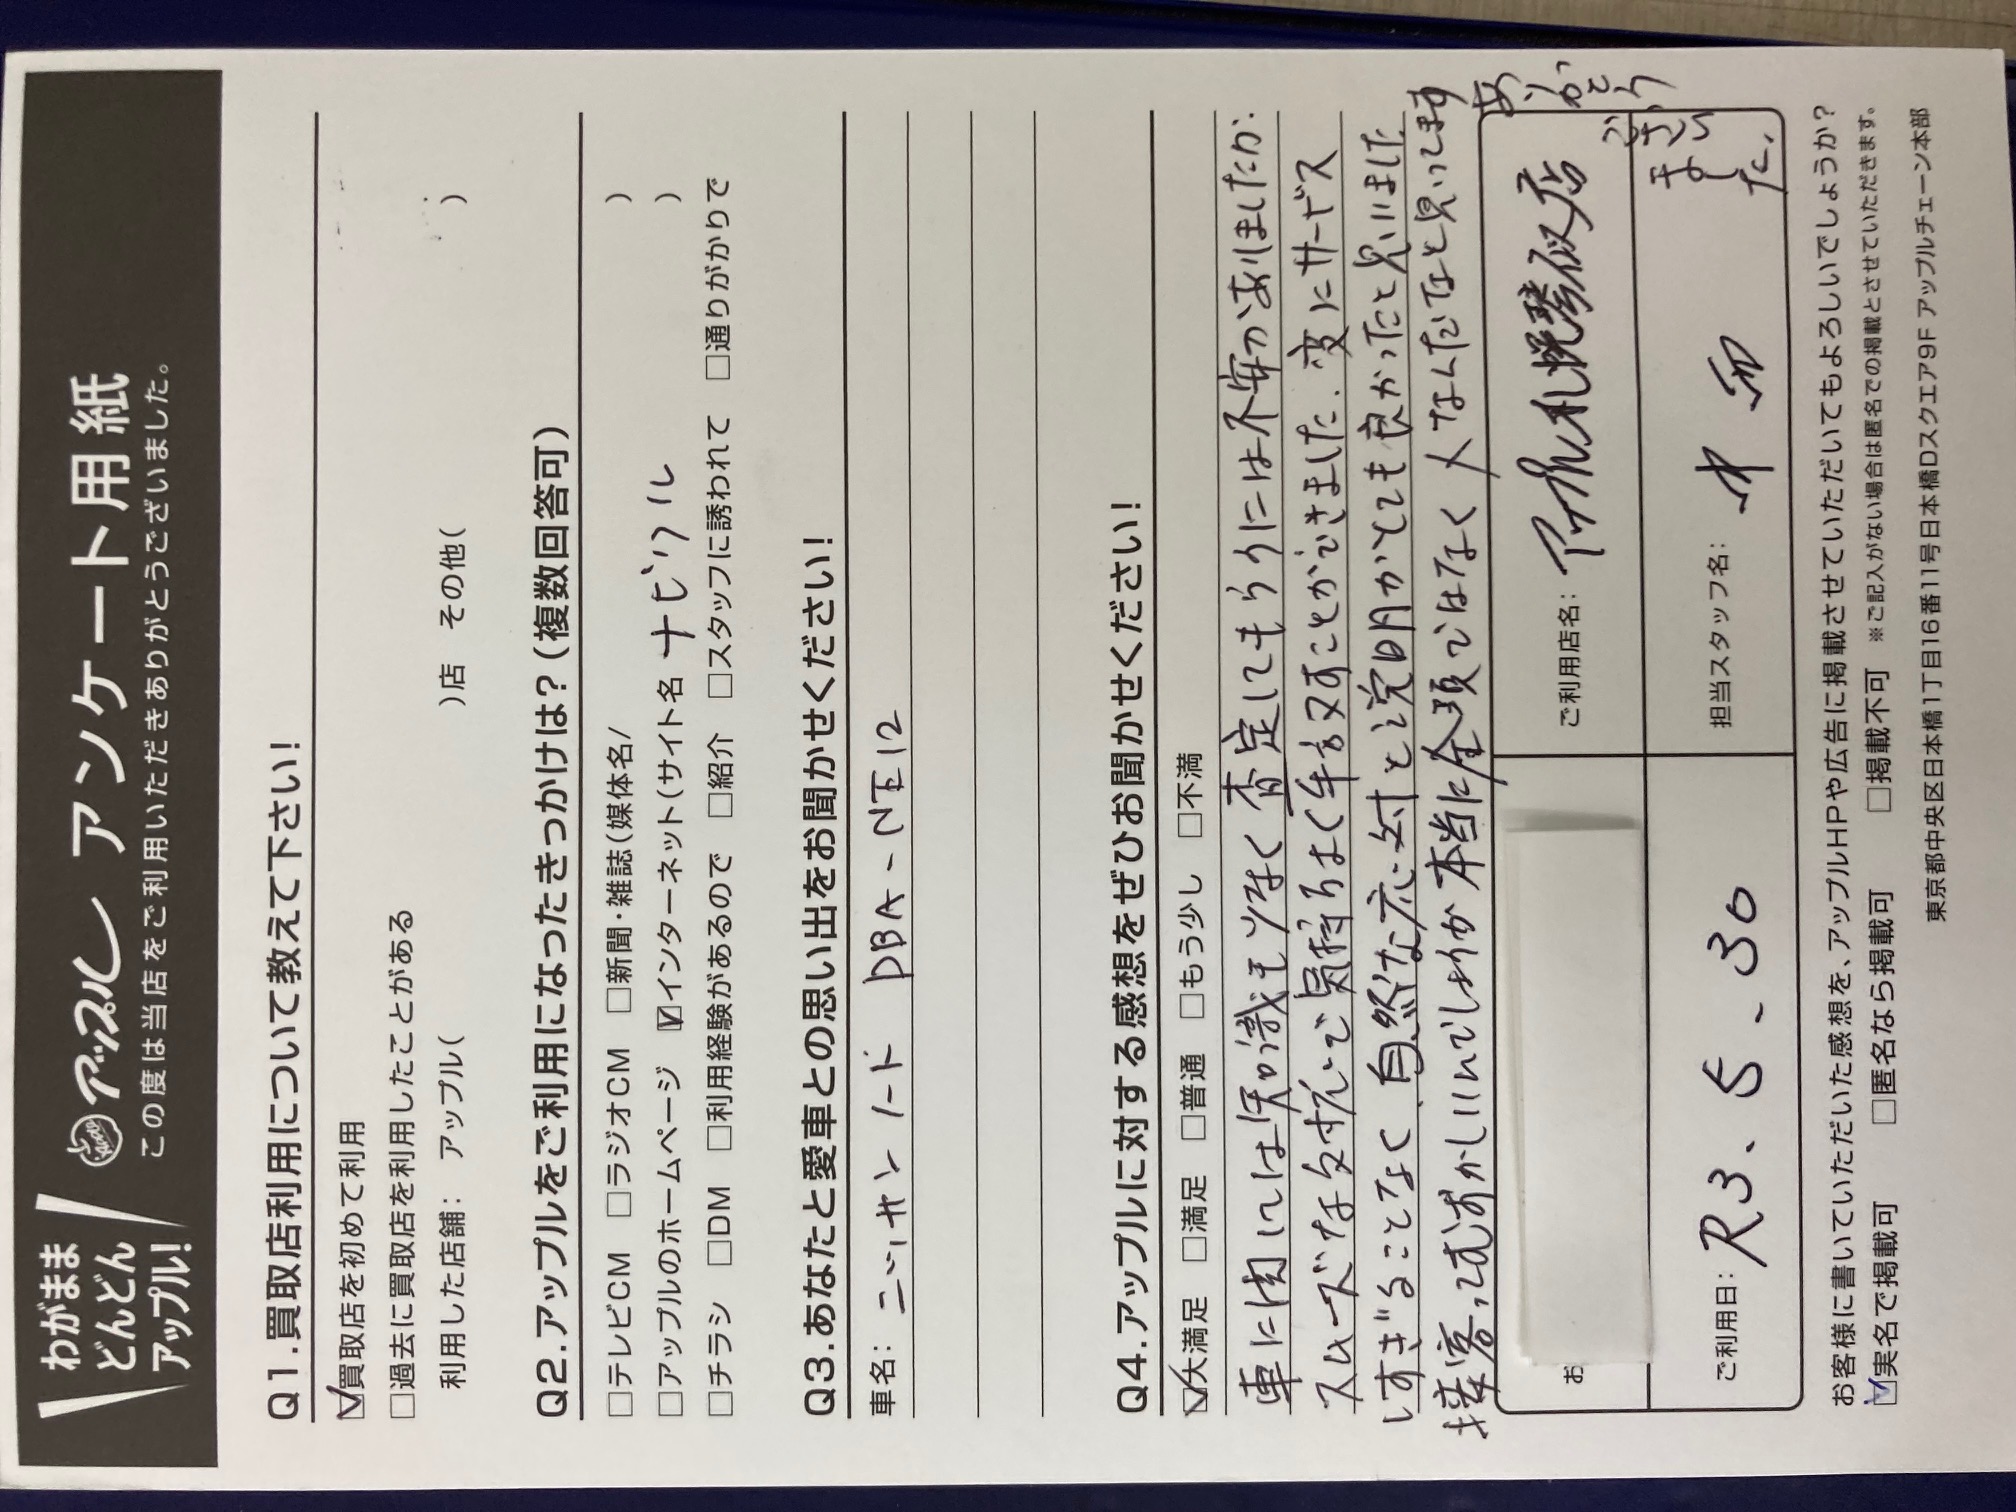 わがまま
どんどん
アップル!
Apple アップル アンケート用紙
この度は当店をご利用いただきありがとうございました。
Q1.買取店利用について教えて下さい!
☑買取店を初めて利用
□過去に買取店を利用したことがある
利用した店舗: アップル( )店 その他( )
Q2.アップルをご利用になったきっかけは?(複数回答可)
□テレビCM □ラジオCM □新聞・雑誌(媒体名/ )
□アップルのホームページ ☑インターネット(サイト名 ナビクル )
□チラシ □DM □利用経験があるので □紹介 □スタッフに誘われて □通りがかりで
Q3.あなたと愛車との思い出をお聞かせください!
車名: ニッサン ノート DBA-NE12
Q4.アップルに対する感想をぜひお聞かせください!
☑大満足 □満足 □普通 □もう少し □不満
車に関しては知識も少なく査定してもらうには不安がありましたが、
スムーズな対応で気持ちよく手放すことができました。変にサービス
しすぎることなく、自然な応対と説明がとても良かったと思いました
接客ってむずかしいんでしょうが本当に金額ではなく人なんだなと思ってます
ありがとう
ござい
まし
た。
お
ご利用店名: アップル札幌琴似店
ご利用日: R3.5.30
担当スタッフ名:
お客様に書いていただいた感想を、アップルHPや広告に掲載させていただいてもよろしいでしょうか?
☑実名で掲載可 □匿名なら掲載可 □掲載不可 ※ご記入がない場合は匿名での掲載とさせていただきます。
東京都中央区日本橋1丁目16番11号日本橋Dスクエア9F アップルチェーン本部